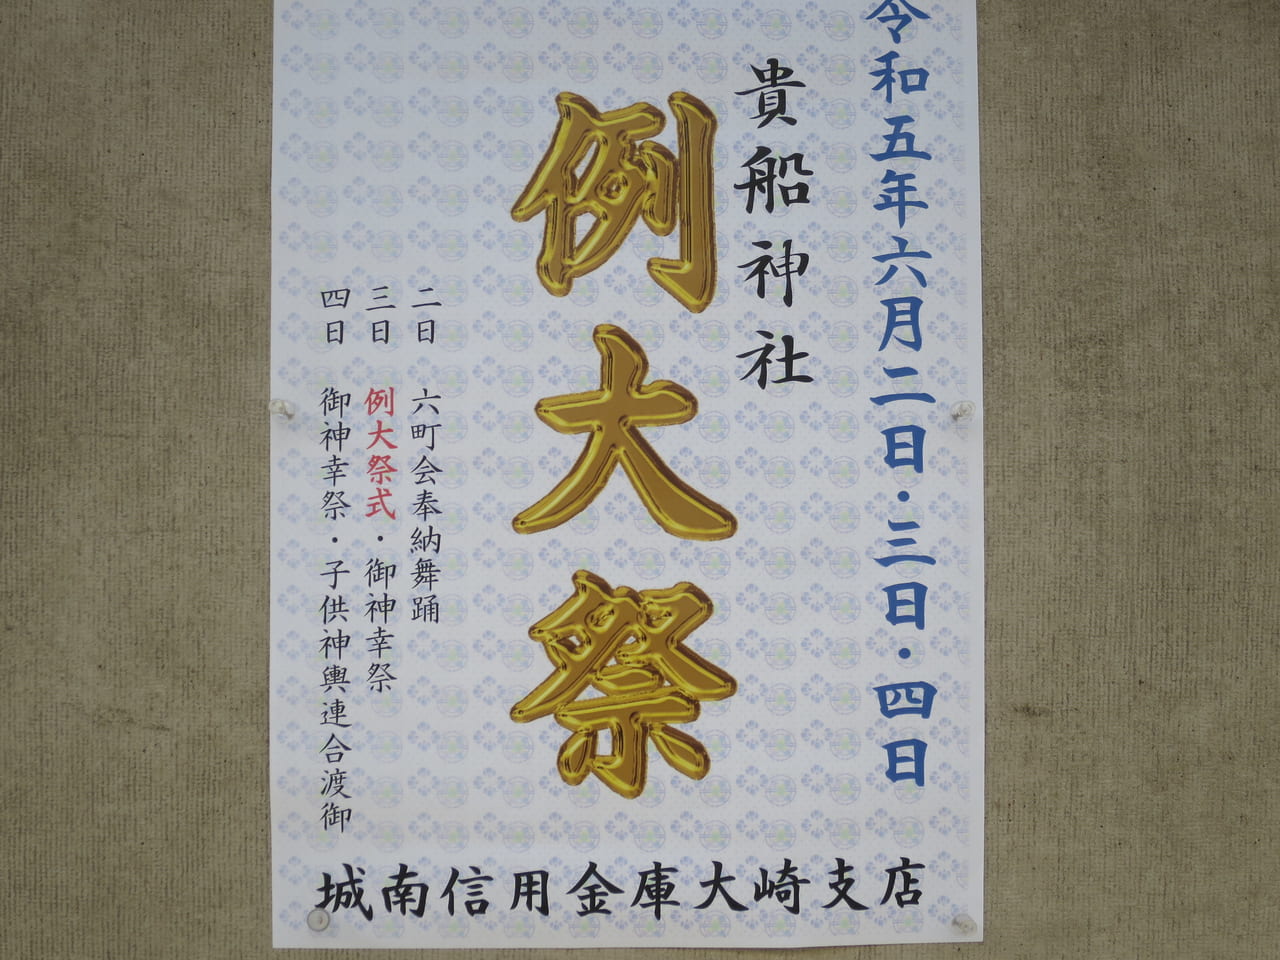 令和五年六月二日・三日・四日
貴船神社
例大祭
二日 六町会奉納舞踊
三日 例大祭式・御神幸祭
四日 御神幸祭・子供神輿連合渡御
城南信用金庫大崎支店